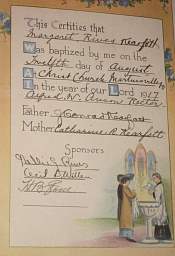 This Certifies that
Margaret Rives Kearfott
Was baptized by me on the
Twelfth day of August
At Christ Church Martinsville Va
In the year of our Lord 1917
Alfred W. Anson Rector
Father Conrad Kearfott
Mother Catharine R. Kearfott
Sponsors
Nallie
Cecil